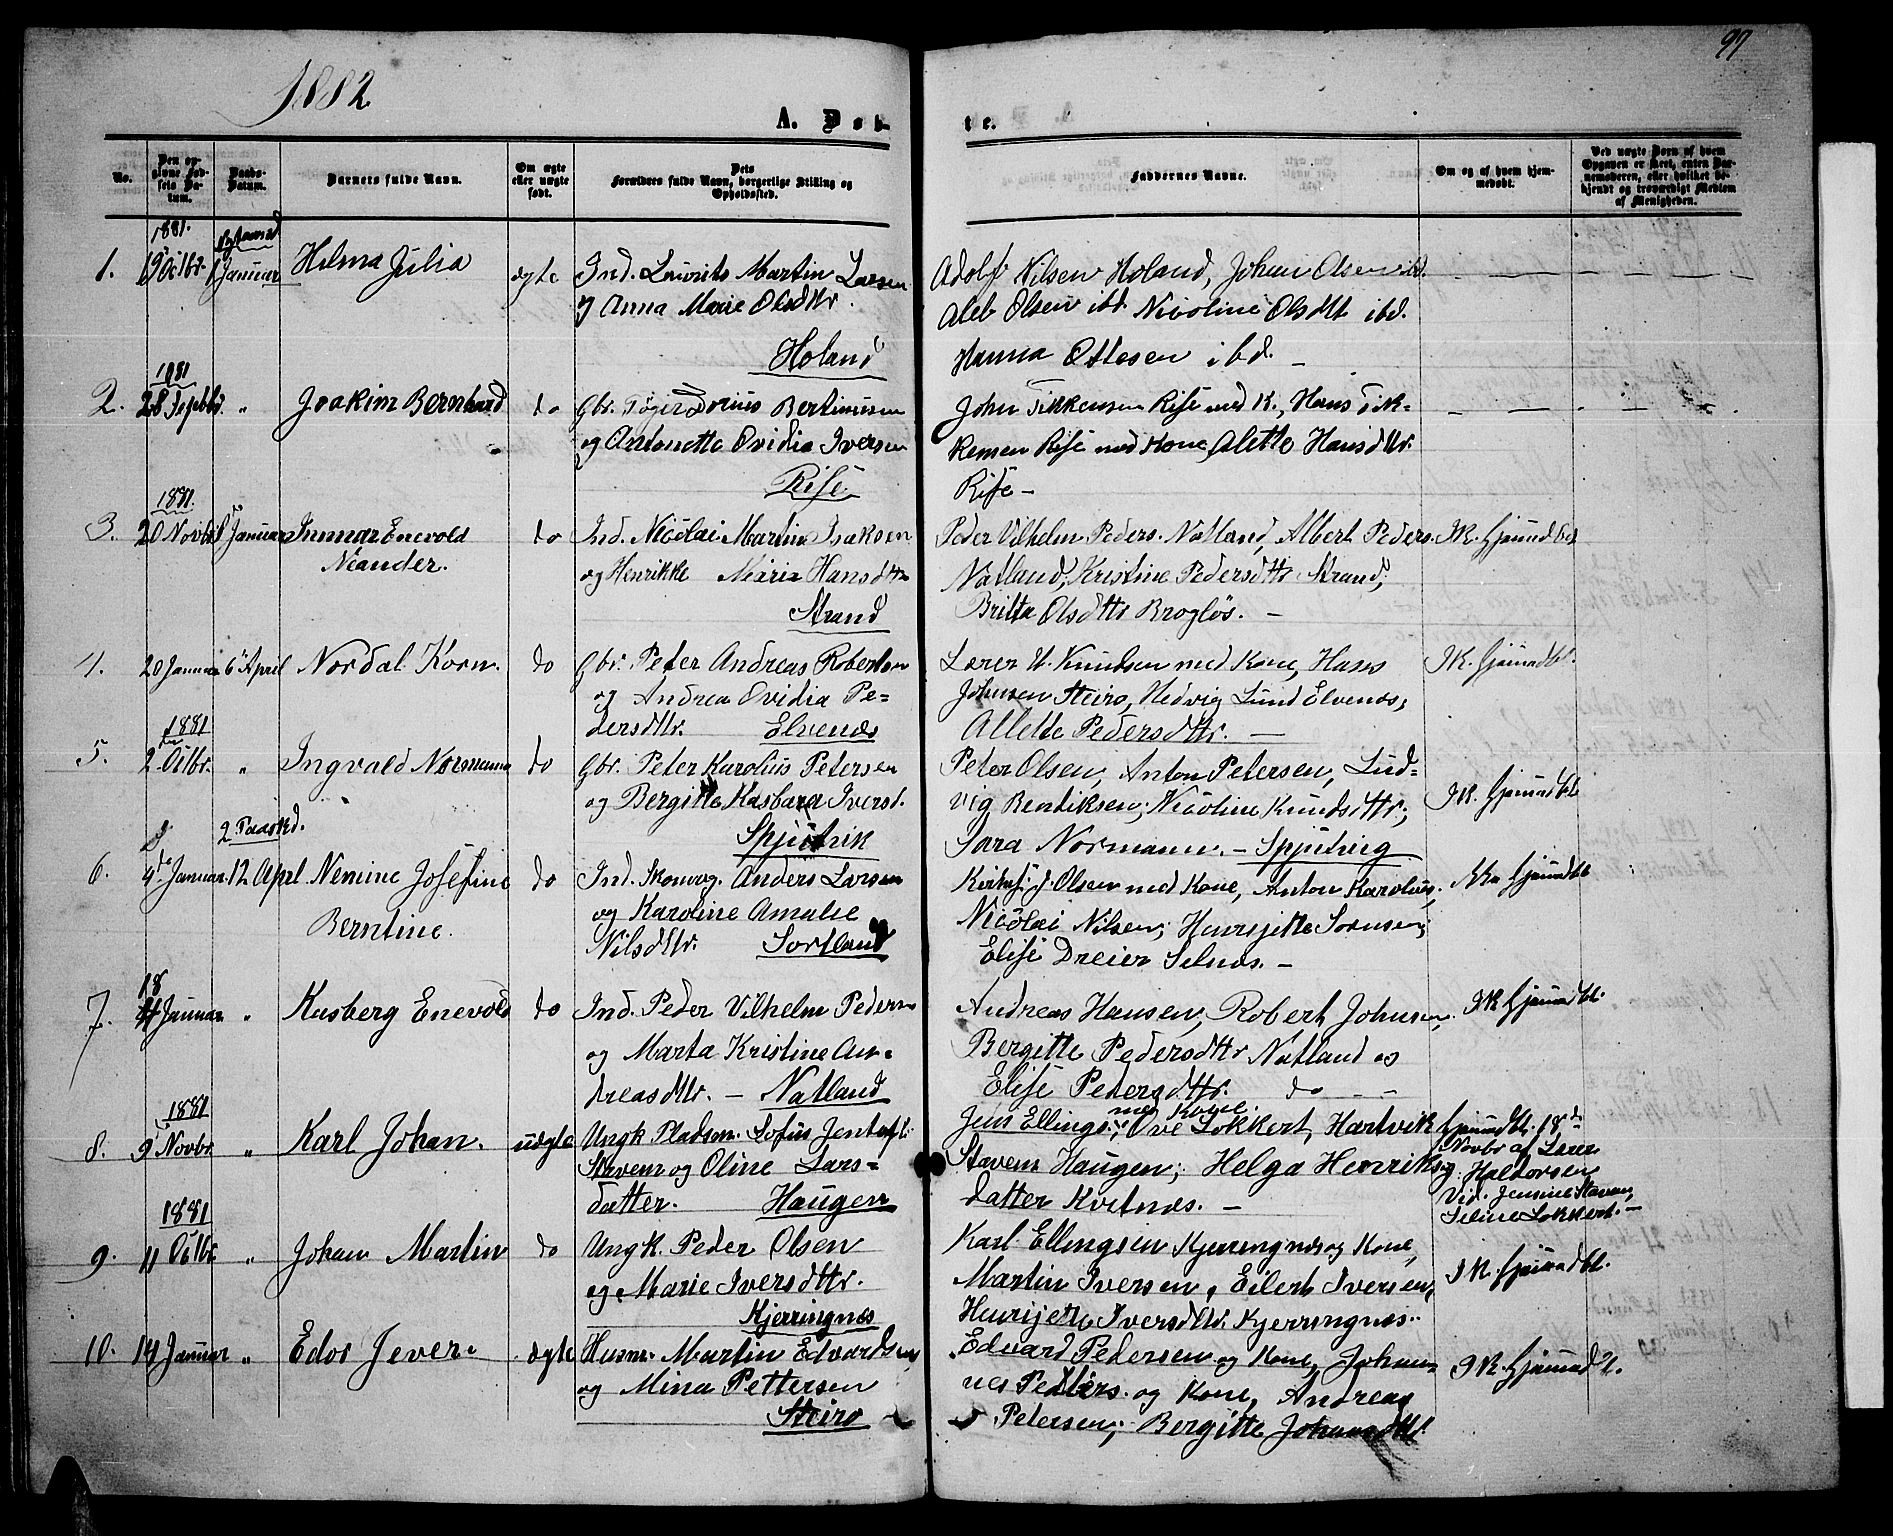 1882
97
A. Døb-
te.
No.
Den op-
givne Fød-
sels Da-
tum.
Daabs-
Datum.
Barnets fulde Navn.
Om ægte
eller uægte
født.
Dets
Forældres fulde Navn, borgerlige Stilling og
Opholdssted.
Faddernes Navne.
Om og af hvem hjem-
medøbt.
Ved uægte Børn af hvem
Opgaven er skeet, enten Bar-
nemoderen, eller hvilket be-
kjendt og troværdigt Medlem
af Menigheden.
1881.
1. 19 Octbr. 1 Januar Helma Julia ægte Ind. Laurits Martin Larsen
og Anna Marie Olsdttr.
Holand
Adolf Nilsen Holand, Johan Olsen ibd.
Aleb Olsen ibd. Nicoline Olsdtt ibd.
Hanna Ottesen ibd. –
1881
2. 28 Septbr. " Joakim Bernhard do Gbr. Tøger Dorius Bertinusen
og Antonette Ovidia Iversen
Rise
John Tikkensen Rise med K., Hans Tik-
kensen Rise med Kone, Alette Hansdttr.
Rise –
1881.
3. 20 Novbr. 8 Januar Inmar Enevold
Neander.
do Ind. Nicolai Martin Isaksen
og Henrikke Maria Hansdttr
Strand
Peder Vilhelm Peders. Natland, Albert Peders.
Natland, Kristine Pedersdttr Strand,
Britta Olsdttr Brogløs. –
IK. hjemdbt
4. 20 Januar 6 April Nordal Korn. do Gbr. Peter Andreas Robertsen
og Andrea Ovidia Pe-
dersdttr. Elvenæs
Lærer U. Knudsen med Kone, Hans
Johnsen Steiro, Hedvig Lund Elvenæs,
Allette Pedersdttr. –
IK. hjemdbt.
1881
5. 2 Octbr. " Ingvald Normann do Gbr. Peter Karolius Petersen
og Bergitte Kasbara Iversd.
Spjutvik
Peter Olsen, Anton Petersen, Lud-
vig Bendiksen; Nicoline Knudsdttr;
Sara Normann. – Spjutvig
IK. hjemdbt
2 Paaskd.
6. 4 Januar. 12 April Nemine Josefine
Berntine.
do Ind. Anders Larsen
og Karoline Amalie
Nilsdttr. Sortland
J. Olsen med Kone, Anton Karolius,
Nicolai Nilsen; Henrijette Sørensen;
Elise Dreier Selnæs. –
hjemdbt
18
7. Januar " Kasberg Enevold do Ind. Peder Vilhelm Pedersn
og Marta Kristine An-
dreasdttr. – Natland
Andreas Hansen, Robert Johnsen,
Bergitte Pedersdttr Natland og
Elise Pedersdttr. do – –
IK hjemdbt.
1881
8. 9 Novbr. " Karl Johan. uægte Ungk Pladsm. Sofus Jentoft
Stavem og Oline Lars-
datter. Haugen
Jens Ellings. med Kone, Ove Lokkert, Hartvik
Stavem Haugen; Helga Henriks-
datter Kvitnæs. –
hjemdbt. 18 d
Novbr af Lærer
Haldorsen
Vid. Jensine Stavem,
Seline Lokkert. –
1881
9. 11 Octbr. " Johan Martin do Ungk. Peder Olsen
og Marie Iversdttr.
Kjerringnæs
Karl Ellingsen Kjerringnæs og Kone,
Martin Iversen, Eilert Iversen,
Henrijette Iversdttr. Kjerringnæs.
IK. hjemdbt.
10. 14 Januar " Edor Jever ægte Husm. Martin Edvardsen
og Mina Pettersen
Steiro
Edvard Pedersen og Kone, Johan-
nes Peders. og Kone, Andreas
Petersen; Bergitte Johansdttr.
IK. hjemdbt.